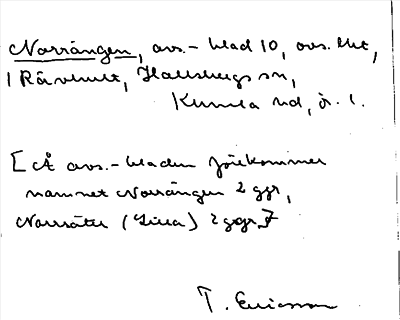 Norrängen, avs.-blad 10, avs. Utt,
1 Rävhult, Hallsbergs sn,
Kumla hd, ör. l.
[Å avs.-bladen förekommer
namnet Norrängen 2 ggr,
Norrsätter (Lilla) 2 ggr.]
T. Ericsson